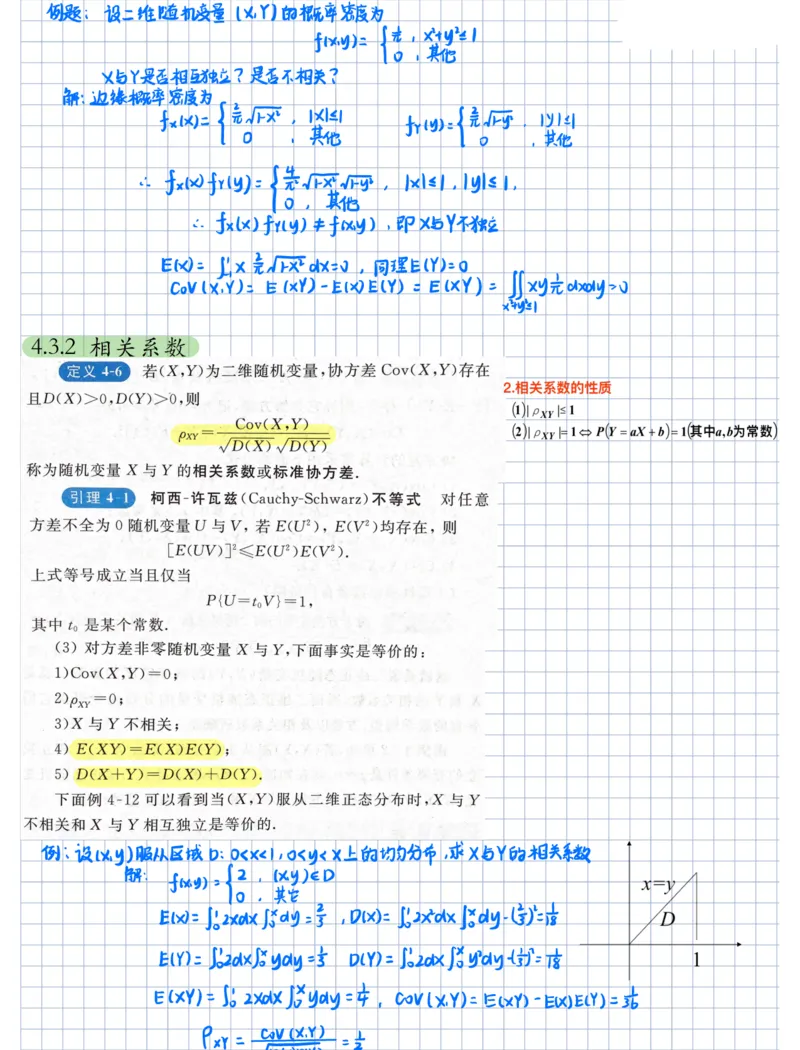 例题：设二维随机变量(X,Y)的概率密度为
f(x,y)= { 1/π , x²+y²≤1
0 , 其他
X与Y是否相互独立？是否不相关？
解：边缘概率密度为
fx(x)= { 2/π √1-x² , |x|≤1
0 , 其他
fY(y)= { 2/π √1-y² , |y|≤1
0 , 其他
∴ fx(x)fY(y)= { 4/π² √1-x² √1-y² , |x|≤1, |y|≤1,
0 , 其他
∴ fx(x)fY(y)≠f(x,y), 即X与Y不独立
E(X)= ∫₋₁¹ x 2/π √1-x² dx=0 , 同理E(Y)=0
Cov(X,Y)= E(XY)-E(X)E(Y) = E(XY) = ∬ xy 1/π dxdy=0
x²+y²≤1
4.3.2 相关系数
定义 4-6 若(X,Y)为二维随机变量,协方差 Cov(X,Y)存在
且D(X)>0,D(Y)>0,则
ρXY = Cov(X,Y) / √D(X) √D(Y)
称为随机变量 X 与 Y 的相关系数或标准协方差.
2.相关系数的性质
(1)|ρXY|≤1
(2)|ρXY|=1⇔P(Y=aX+b)=1(其中a,b为常数)
引理 4-1 柯西-许瓦兹(Cauchy-Schwarz)不等式 对任意
方差不全为 0 随机变量 U 与 V, 若 E(U²), E(V²)均存在, 则
[E(UV)]²≤E(U²)E(V²).
上式等号成立当且仅当
P{U=t₀V}=1,
其中 t₀ 是某个常数.
(3) 对方差非零随机变量 X 与 Y,下面事实是等价的:
1)Cov(X,Y)=0;
2)ρXY=0;
3)X 与 Y 不相关;
4) E(XY)=E(X)E(Y);
5) D(X+Y)=D(X)+D(Y).
下面例 4-12 可以看到当(X,Y)服从二维正态分布时,X 与 Y
不相关和 X 与 Y 相互独立是等价的.
例：设(x,y)服从区域D: 0<x<1, 0<y<x上的均匀分布,求X与Y的相关系数
解: f(x,y)= { 2 , (x,y)∈D
0 , 其它
E(X)= ∫₀¹2xdx∫₀ˣdy=2/3 , D(X)= ∫₀¹2x²dx∫₀ˣdy-(2/3)²=1/18
E(Y)= ∫₀¹2dx∫₀ˣydy=1/3 D(Y)= ∫₀¹2dx∫₀ˣy²dy-(1/3)²=1/18
E(XY)= ∫₀¹2xdx∫₀ˣydy=1/4 , Cov(X,Y)= E(XY)-E(X)E(Y)=1/36
ρXY = Cov(X,Y) / = 1/2
x=y
D
1